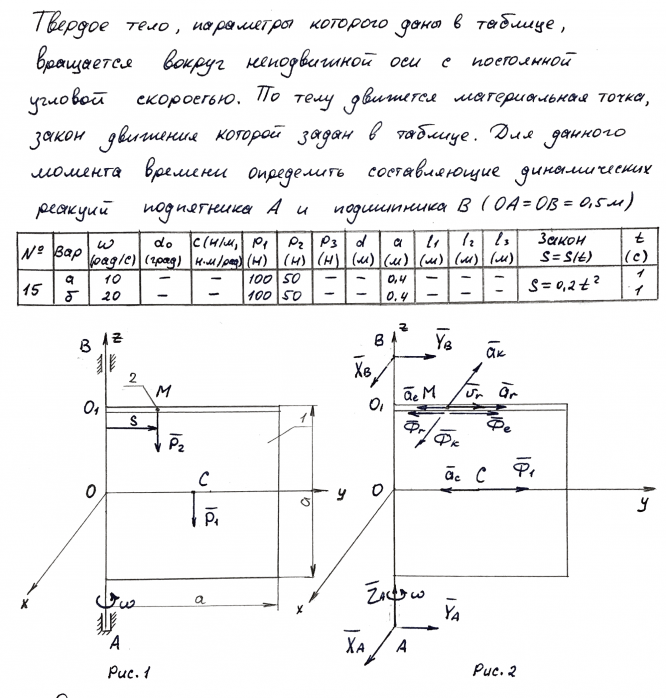 Твердое тело, параметры которого даны в таблице,
вращается вокруг неподвижной оси с постоянной
угловой скоростью. По телу движется материальная точка,
закон движения которой задан в таблице. Для данного
момента времени определить составляющие динамических
реакций подпятника А и подшипника В (ОА=ОВ=0,5м)
№ Вар ω (рад/с) α₀ (град) c(н/м, н.м/рад) P₁ (Н) P₂ (Н) P₃ (Н) d (м) a (м) l₁ (м) l₂ (м) l₃ (м) Закон S=S(t) t (с)
15 а 10 – – 100 50 – – 0,4 – – – S=0,2t² 1
б 20 – – 100 50 – – 0.4 – – – 1
B z
2 M
O₁
S
P̅₂
1
O C y
P̅₁
a
x
ω
a
A
Рис. 1
B z
Y̅B
X̅B
a̅к
O₁ a̅e M v̅r a̅r
Φ̅r Φ̅к Φ̅e
a̅c C Φ̅₁
O y
x
Z̅A ω
Y̅A
X̅A A
Рис. 2